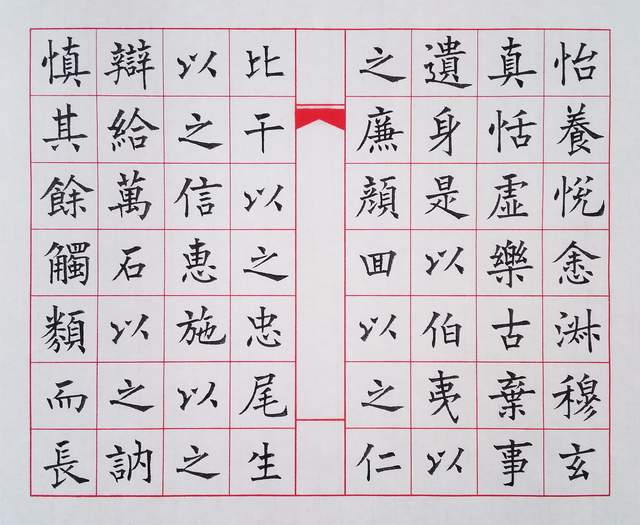 怡養悅悆淑穆玄
真恬虛樂古棄事
遺身是以伯夷以
之廉顏回以之仁
比干以之忠尾生
以之信惠施以之
辯給萬石以之訥
慎其餘觸類而長